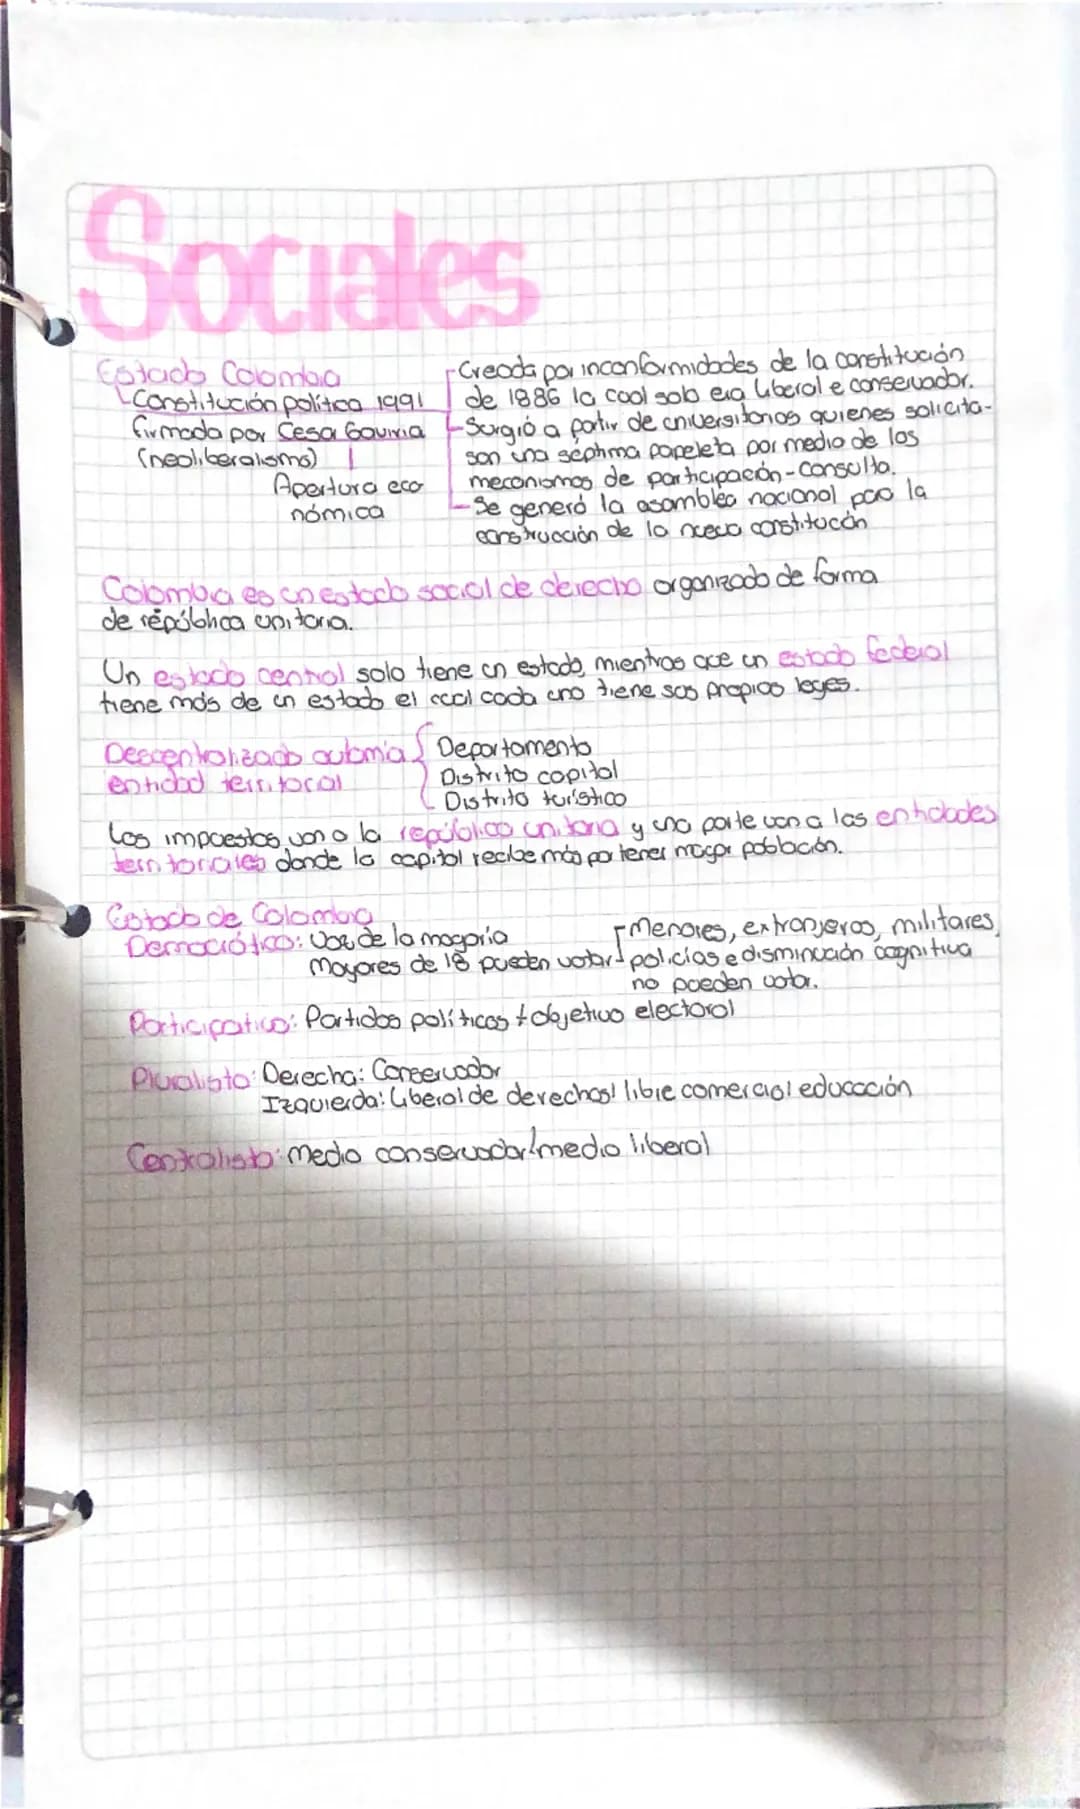 Sociales
Estado Colombia
Constitución política 1991
firmada por Cesar Gaviria
(neoliberalismo)
Apertura eco
nómica
-Creada por inconformidades de la constitución
de 1886 la cual solo era liberal e conservador.
-Surgió a partir de universitarios quienes solicita-
son una séptima papeleta por medio de los
mecanismos de participación-Consulta.
-Se generó la asamblea nacional para la
construcción de la nueva constitución
Colombia es un estado social de derecho organizado de forma
de república unitaria.
Un estado central solo tiene un estado, mientras que un estado federal
tiene más de un estado el cual cada uno tiene sus propias leyes.
Descentralizado
entidad territorial
Departamento
Distrito capital
Distrito turístico
Los impuestos van a la república unitaria y una parte van a las entidades
territoriales donde la capital recibe más por tener mayor población.
Estado de Colombia
Democrático: Voz de la mayoria
Mayores de 18 pueden votar
Menores, extranjeros, militares,
policías e disminución cognitiva
no pueden votar.
Participativo: Partidos políticos + objetivo electoral
Pluralista: Derecha: Conservador
Izquierda: Liberal de derechos/ libre comercio/ educación
Centralista: Medio conservador/medio liberal